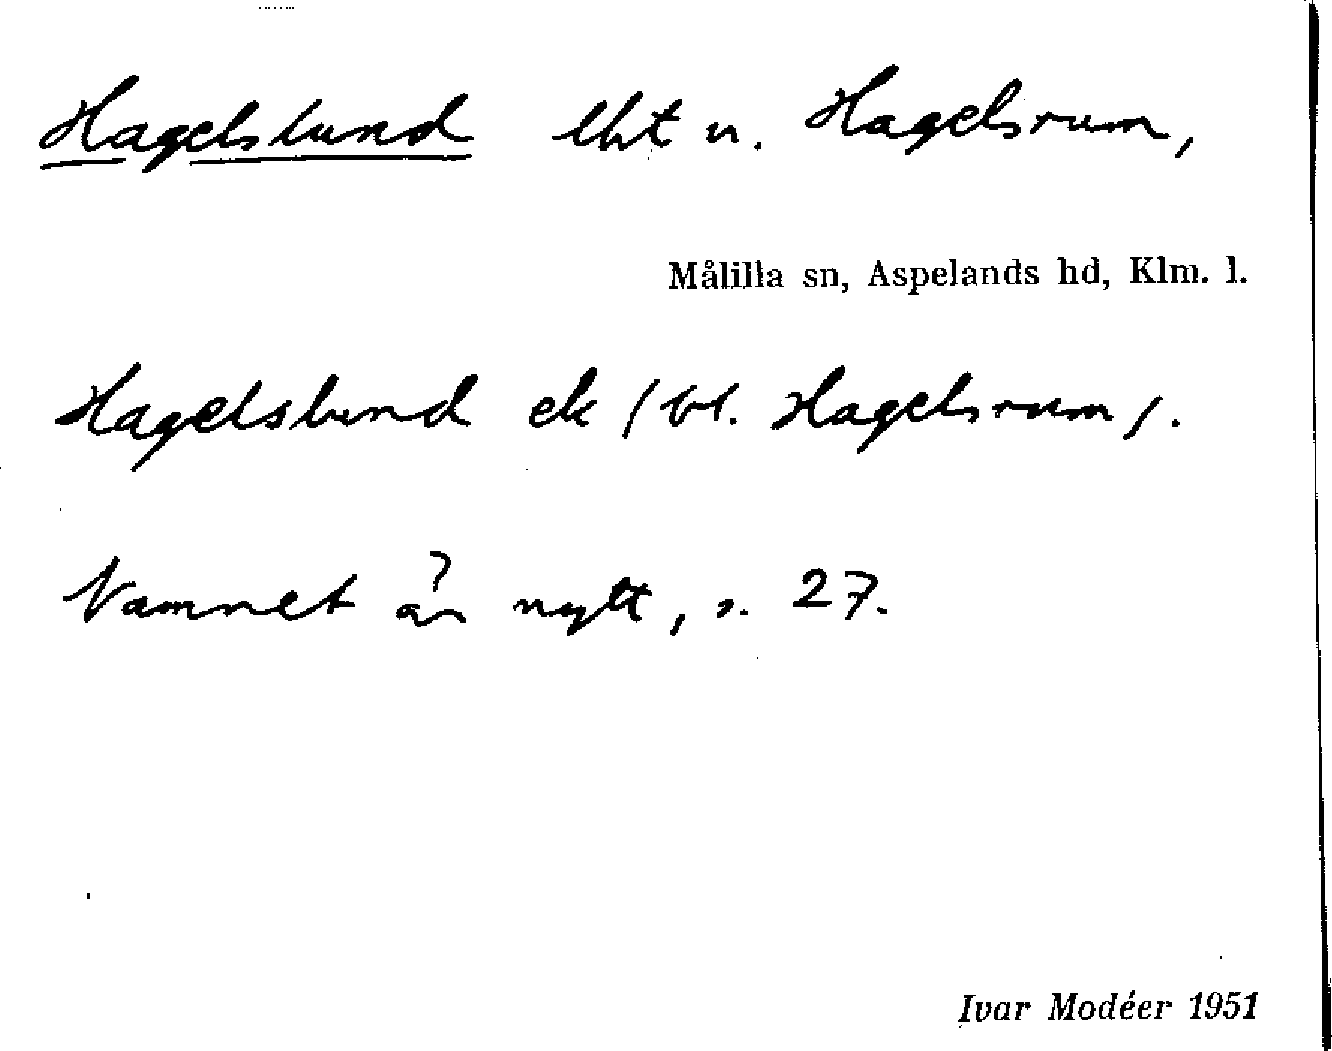 Hagelslund lht u. Hagelsrum,
Målilla sn, Aspelands hd, Klm. l.
Hagelslund ek (bl. Hagelsrum).
Namnet är nytt, s. 27.
Ivar Modéer 1951